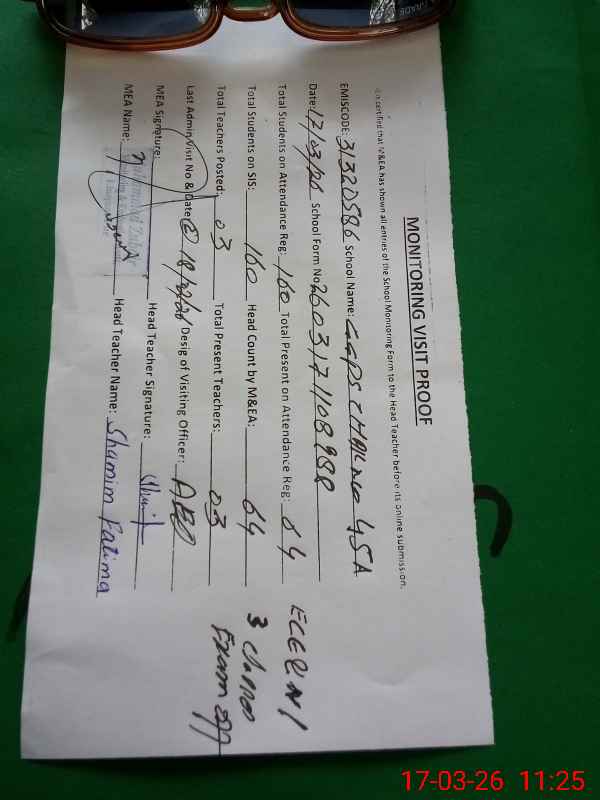 MONITORING VISIT PROOF
It is certified that M&EA has shown all entries of the School Monitoring Form to the Head Teacher before its online submission.
EMISCODE: 31320586 School Name: GGPS CHAK no 45A
Date: 17/03/26 School Form No 2603171108988
Total Students on Attendance Reg: 160 Total Present on Attendance Reg: 64
Total Students on SIS: 160 Head Count by M&EA: 64
Total Teachers Posted: 03 Total Present Teachers: 03
Last Admin Visit No & Date 18/2/26 Desig of Visiting Officer: AEO
MEA Signature: Head Teacher Signature:
MEA Name: Head Teacher Name: Shamim Fatima
3 class
Exam off
17-03-26 11:25